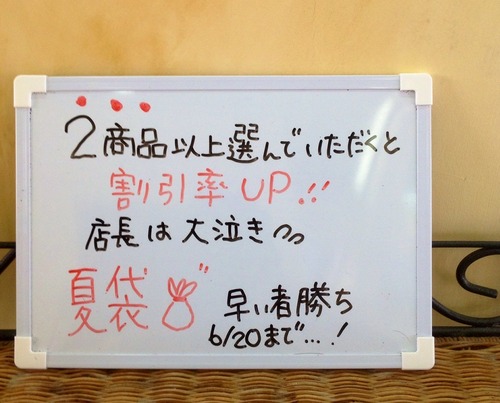 2商品以上選んでいただくと
割引率UP!!
店長は大泣き
夏袋
早い者勝ち
6/20まで…!